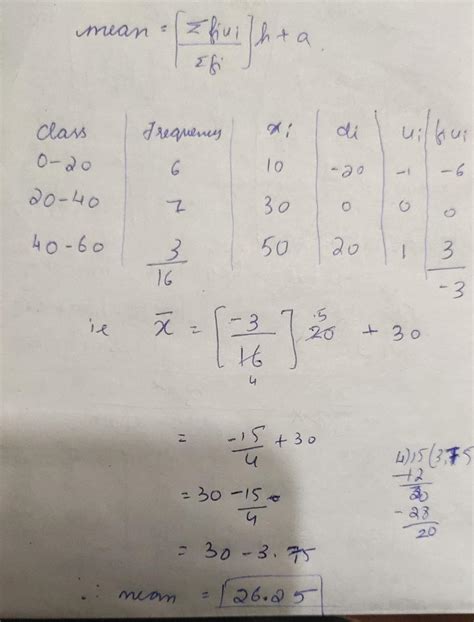 mean = [Σfiui / Σfi] h + a.
class frequency xi di ui fiui
0-20 6 10 -20 -1 -6
20-40 7 30 0 0 0
40-60 3 50 20 1 3
16 -3
ie x̄ = [-3 / 16] 20 + 30
5
4
= -15/4 + 30
= 30 - 15/4
= 30 - 3.75
∴ mean = 26.25
4)15(3.75
-12
20
-28
20